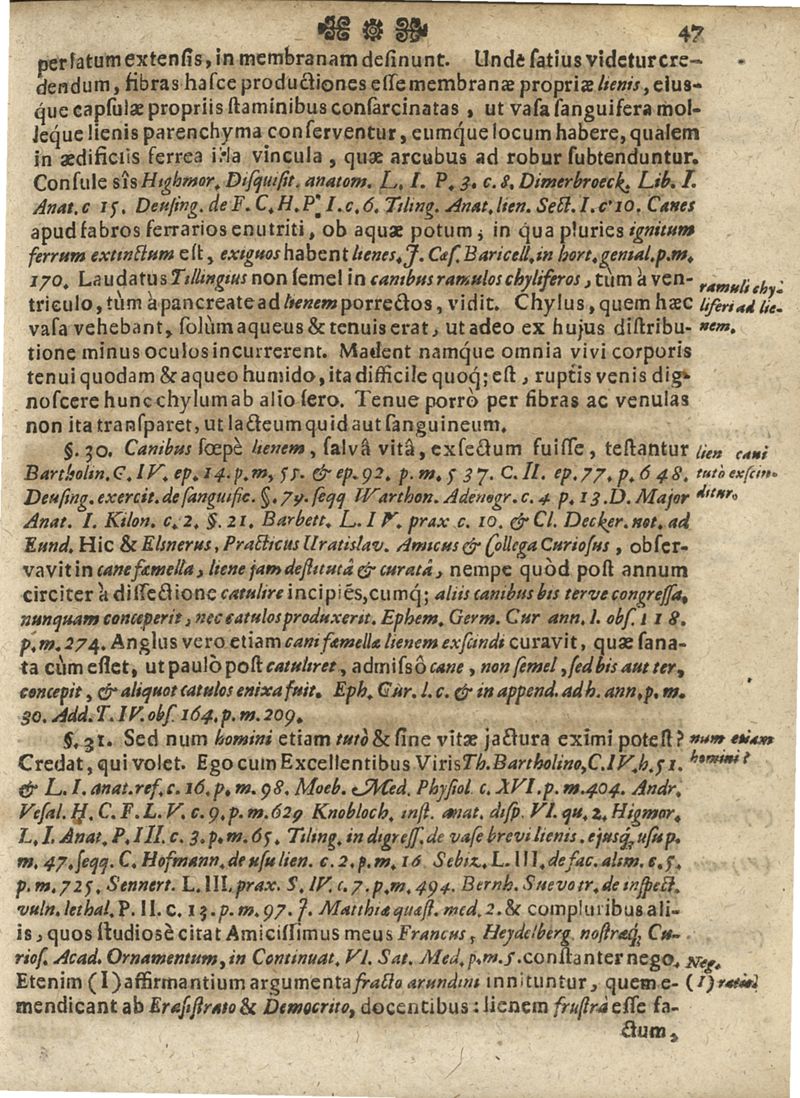 47
per latum extensis, in membranam desinunt. Undè satius videtur cre-
dendum, fibras hasce productiones esse membranæ propriæ lienis, ejus-
q́ue capsulæ propriis staminibus consarcinatas, ut vasa sanguifera mol-
leq́ue lienis parenchyma conserventur, eumq́ue locum habere, qualem
in ædificiis ferrea illa vincula, quæ arcubus ad robur subtenduntur.
Consule sîs Highmor. Disquisit. anatom. L. I. P. 3. c. 8. Dimerbroeck. Lib. I.
Anat. c 15. Deusing. de F. C. H. P. I. c. 6. Tiling. Anat. lien. Sect. I. c. 10. Canes
apud fabros ferrarios enutriti, ob aquæ potum, in qua pluries ignitum
ferrum extinctum est, exiguos habent lienes. J. Cæs. Baricell. in hort. genial. p. m.
170. Laudatus Tillingius non semel in canibus ramulos chyliferos, tùm à ven-
triculo, tùm à pancreate ad lienem porrectos, vidit. Chylus, quem hæc
vasa vehebant, solùm aqueus & tenuis erat, ut adeo ex hujus distribu-
tione minus oculos incurrerent. Madent namq́ue omnia vivi corporis
tenui quodam & aqueo humido, ita difficile quoq; est, ruptis venis dig-
noscere hunc chylum ab alio sero. Tenue porrò per fibras ac venulas
non ita transparet, ut lacteum quid aut sanguineum.
ramuli chy-
liferi ad lie-
nem.
§. 30. Canibus sœpè lienem, salvâ vitâ, exsectum fuisse, testantur
Bartholin. C. IV. ep. 14. p. m, 55. & ep. 92. p. m. 5 37. C. II. ep. 77. p. 6 48.
Deusing. exercit. de sanguific. §. 79. seqq Warthon. Adenogr. c. 4 p. 13. D. Major
Anat. I. Kilon. c. 2. §. 21. Barbett. L. I V. prax c. 10. & Cl. Decker. not. ad
Eund. Hic & Elsnerus, Practicus Uratislav. Amicus & Collega Curiosus, obser-
vavit in cane fæmella, liene jam destitutâ & curatâ, nempe quòd post annum
circiter à dissectione catulire incipiẽs, cumq; aliis canibus bis terve congressa,
nunquam conceperit, nec catulos produxerit. Ephem. Germ. Cur ann. 1. obs. 1 1 8.
p. m. 274. Anglus vero etiam cani fæmellæ lienem exscindi curavit, quæ sana-
ta cùm esset, ut paulò post catuliret, admissô cane, non semel, sed bis aut ter,
concepit, & aliquot catulos enixa fuit. Eph. Cur. l. c. & in append. ad h. ann. p. m.
30. Add. T. IV. obs. 164. p. m. 209.
lien cani
tutò exscin-
ditur.
§. 31. Sed num homini etiam tutò & sine vitæ jactura eximi potest?
Credat, qui volet. Ego cum Excellentibus Viris Th. Bartholino, C. IV. h. 51.
& L. I. anat. ref. c. 16. p. m. 98. Moeb. Med. Physiol c. XVI. p. m. 404. Andr.
Vesal. H. C. F. L. V. c. 9. p. m. 629 Knobloch. inst. anat. disp. VI. qu. 2. Higmor.
L. I. Anat. P. III. c. 3. p. m. 65. Tiling. in digress. de vase brevi lienis. ejusq́. usu p.
m. 47. seqq. C. Hofmann. de usu lien. c. 2. p. m. 16 Sebiz. L. III. de fac. alim. c. 5.
p. m. 725. Sennert. L. III. prax. S. IV. c. 7. p. m. 494. Bernh. Suevo tr. de inspect.
vuln. lethal. P. II. c. 13. p. m. 97. J. Matthiæ quæst. med. 2. & compluribus ali-
is, quos studiosè citat Amicissimus meus Francus, Heydelberg. nostræq́. Cu-
rios. Acad. Ornamentum, in Continuat. VI. Sat. Med. p. m. 5. constanter nego.
Etenim (I) affirmantium argumenta fracto arundini innituntur, quem e-
mendicant ab Erasistrato & Democrito, docentibus: lienem frustrà esse fa-
ctum,
num etiam
homini?
Neg.
(I) ratio